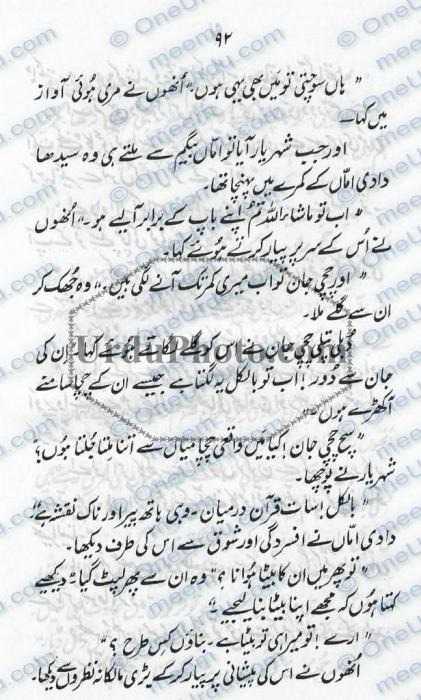 ۹۲
" ہاں سوچتی تو میں بھی یہی ہوں" اُنھوں نے مری ہُوئی آواز
میں کہا۔
اور جب شہریار آیا تو اماں بیگم سے ملتے ہی وہ سیدھا
دادی اماں کے کمرے میں پہنچا تھا۔
" اب تو ماشاء اللہ تم اپنے باپ کے برابر آلیے ہو" اُنھوں
نے اُس کے سر پر پیار کرتے ہُوئے کہا۔
" اور چچی جان تو اب میری کمر تک آنے لگی ہیں" وہ جُھک کر
ان سے گلے ملا۔
دُبلی پتلی چچی جان نے اس کو گلے لگاتے ہُوئے کہا "ان کی
جان سے دُور! اب تو بالکل یہ لگتا ہے جیسے ان کے چچا سامنے
آکھڑے ہوں"
" سچ چچی جان! کیا میں واقعی چچا میاں سے اتنا مِلتا جُلتا ہُوں؟"
شہریار نے پوچھا۔
" بالکل! سات قرآن درمیان۔ وہی ہاتھ پیر اور ناک نقشہ ہے"
دادی اماں نے افسردگی اور شوق سے اس کی طرف دیکھا۔
" تو پھر میں ان کا بیٹا ہُوا نا؟" وہ ان سے پھر لپٹ گیا" دیکھیے
کہتا ہُوں کہ مجھے اپنا بیٹا بنا لیجیے"
" ارے! تو میرا ہی تو بیٹا ہے۔ بناؤں کس طرح؟"
اُنھوں نے اس کی پیشانی پر پیار کرکے بڑی مالکانہ نظروں سے دیکھا۔
UrduPhoto.com
© OneUrdu.com